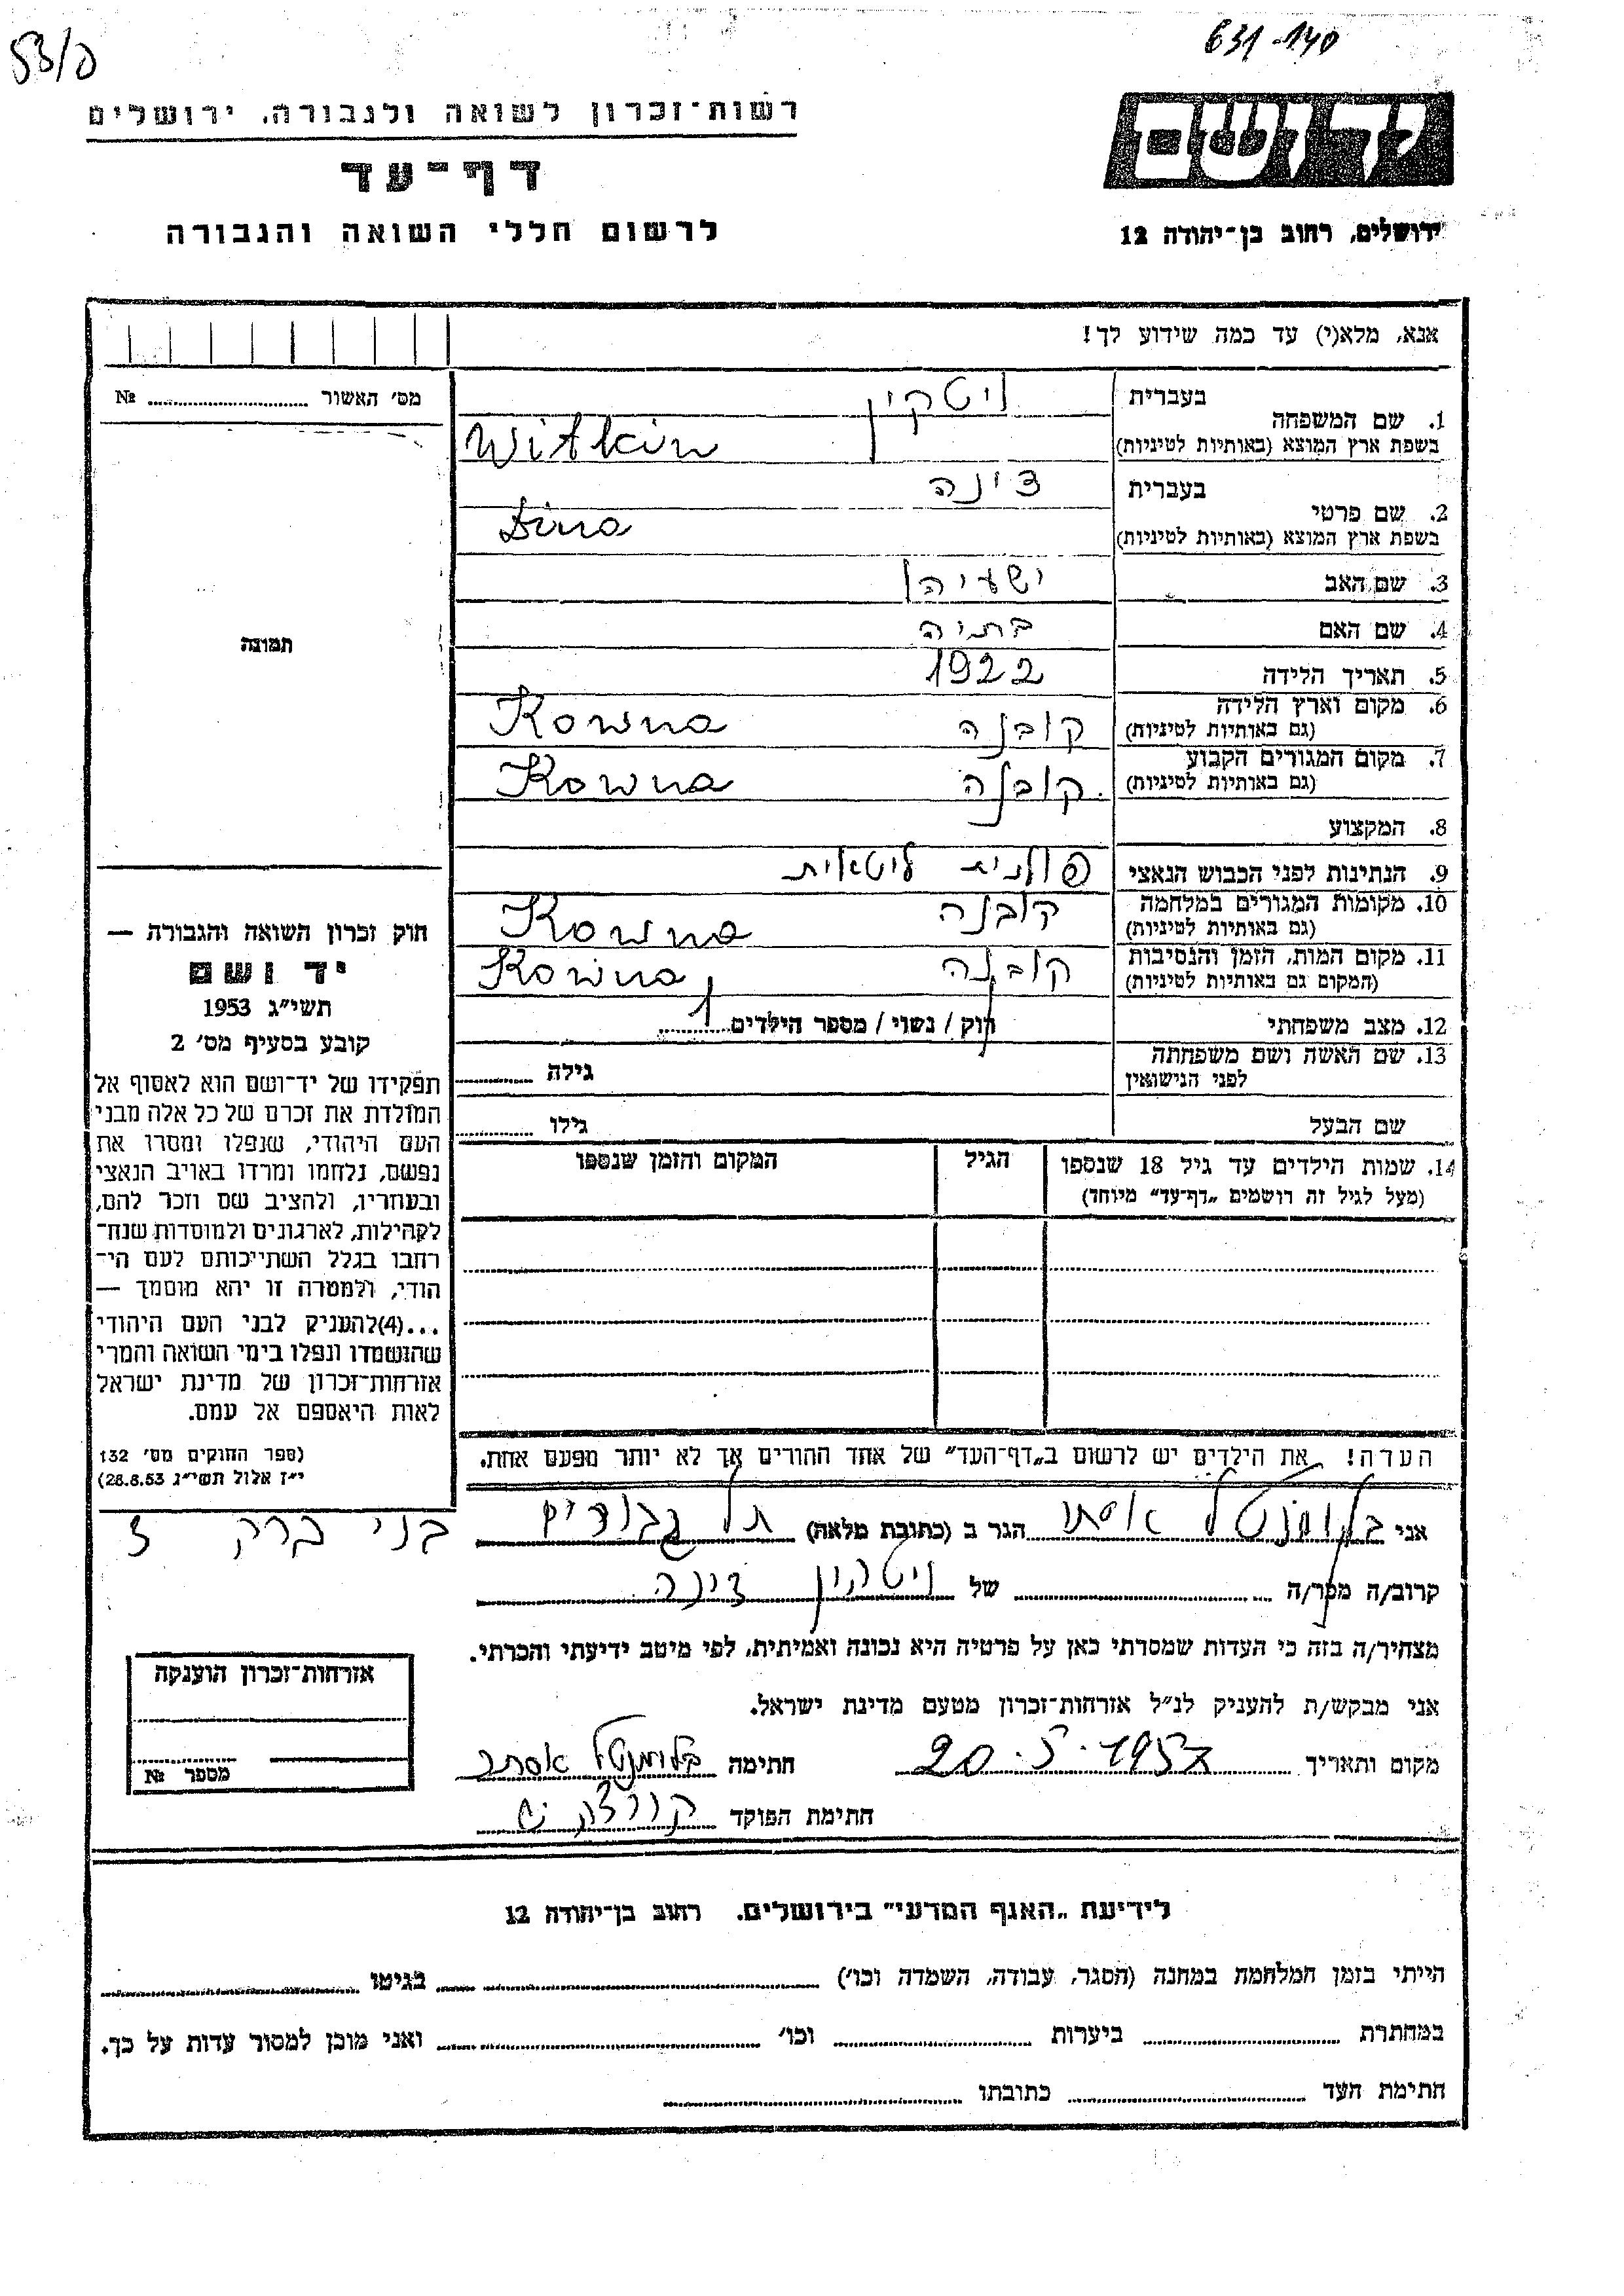 53/ס
631-140
יד ושם
רשות-זכרון לשואה ולגבורה, ירושלים
דף-עד
לרשום חללי השואה והגבורה
ירושלים, רחוב בן-יהודה 12
אנא, מלא(י) עד כמה שידוע לך!
מס׳ האשור № 
בעברית ויטקין
1. שם המשפחה
בשפת ארץ המוצא (באותיות לטיניות) Witkin
בעברית דינה
2. שם פרטי
בשפת ארץ המוצא (באותיות לטיניות) Dina
3. שם האב ישעיהו
4. שם האם בתיה
5. תאריך הלידה 1922
6. מקום וארץ הלידה
(גם באותיות לטיניות) קובנה Kowna
7. מקום המגורים הקבוע
(גם באותיות לטיניות) קובנה Kowna
8. המקצוע
9. הנתינות לפני הכבוש הנאצי פולנית ליטאית
10. מקומות המגורים במלחמה
(גם באותיות לטיניות) קובנה Kowna
11. מקום המות, הזמן והנסיבות
(המקום גם באותיות לטיניות) קובנה Kowna
12. מצב משפחתי רוק / נשוי / מספר הילדים
13. שם האשה ושם משפחתה
לפני הנישואין גילה
שם הבעל גילו
14. שמות הילדים עד גיל 18 שנספו הגיל המקום והזמן שנספו
(מעל לגיל זה רושמים „דף-עד״ מיוחד)
תמונה
חוק זכרון השואה והגבורה —
יד ושם
תשי״ג 1953
קובע בסעיף מס׳ 2
תפקידו של יד-ושם הוא לאסוף אל
המולדת את זכרם של כל אלה מבני
העם היהודי, שנפלו ומסרו את
נפשם, נלחמו ומרדו באויב הנאצי
ובעוזריו, ולהציב שם וזכר להם,
לקהילות, לארגונים ולמוסדות שנח-
רבו בגלל השתייכותם לעם הי-
הודי, ולמטרה זו יהא מוסמך —
...(4)להעניק לבני העם היהודי
שהושמדו ונפלו בימי השואה והמרי
אזרחות-זכרון של מדינת ישראל
לאות היאספם אל עמם.
(ספר החוקים מס׳ 132
י״ז אלול תשי״ג 28.8.53)
הערה! את הילדים יש לרשום ב„דף-העד״ של אחד ההורים אך לא יותר מפעם אחת.
אני בלומנטל אסתר הגר ב (כתובת מלאה) תל גבורים בני ברק 3
קרוב/ה מכר/ה של ויטקין דינה
מצהיר/ה בזה כי העדות שמסרתי כאן על פרטיה היא נכונה ואמיתית, לפי מיטב ידיעתי והכרתי.
אני מבקש/ת להעניק לנ״ל אזרחות-זכרון מטעם מדינת ישראל.
מקום ותאריך 20.5.1957 חתימה בלומנטל אסתר
חתימת הפוקד
אזרחות-זכרון הוענקה
מספר №
לידיעת „האגף המדעי״ בירושלים. רחוב בן-יהודה 12
הייתי בזמן המלחמה במחנה (הסגר, עבודה, השמדה וכו׳) בגיטו
במחתרת ביערות וכו׳ ואני מוכן למסור עדות על כך.
חתימת העד כתובתו